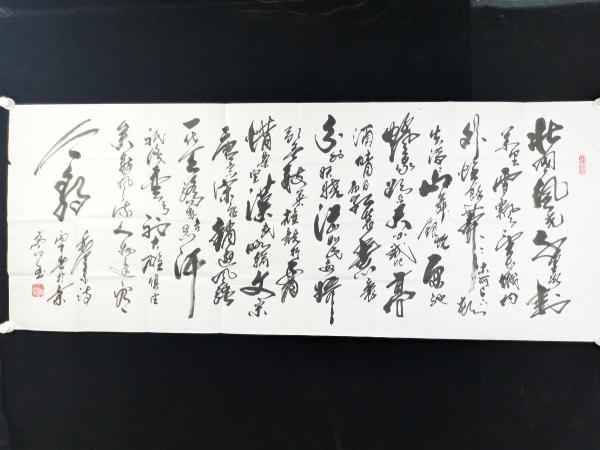 北国风光千里冰封
万里雪飘望长城内
外惟余莽莽大河上下顿
失滔滔山舞银蛇原驰
蜡象欲与天公试比高
须晴日看红装素裹
分外妖娆江山如此多娇
引无数英雄竞折腰
惜秦皇汉武略输文采
唐宗宋祖稍逊风骚
一代天骄成吉思汗
只识弯弓射大雕俱往
矣数风流人物还看
今朝
毛泽东诗